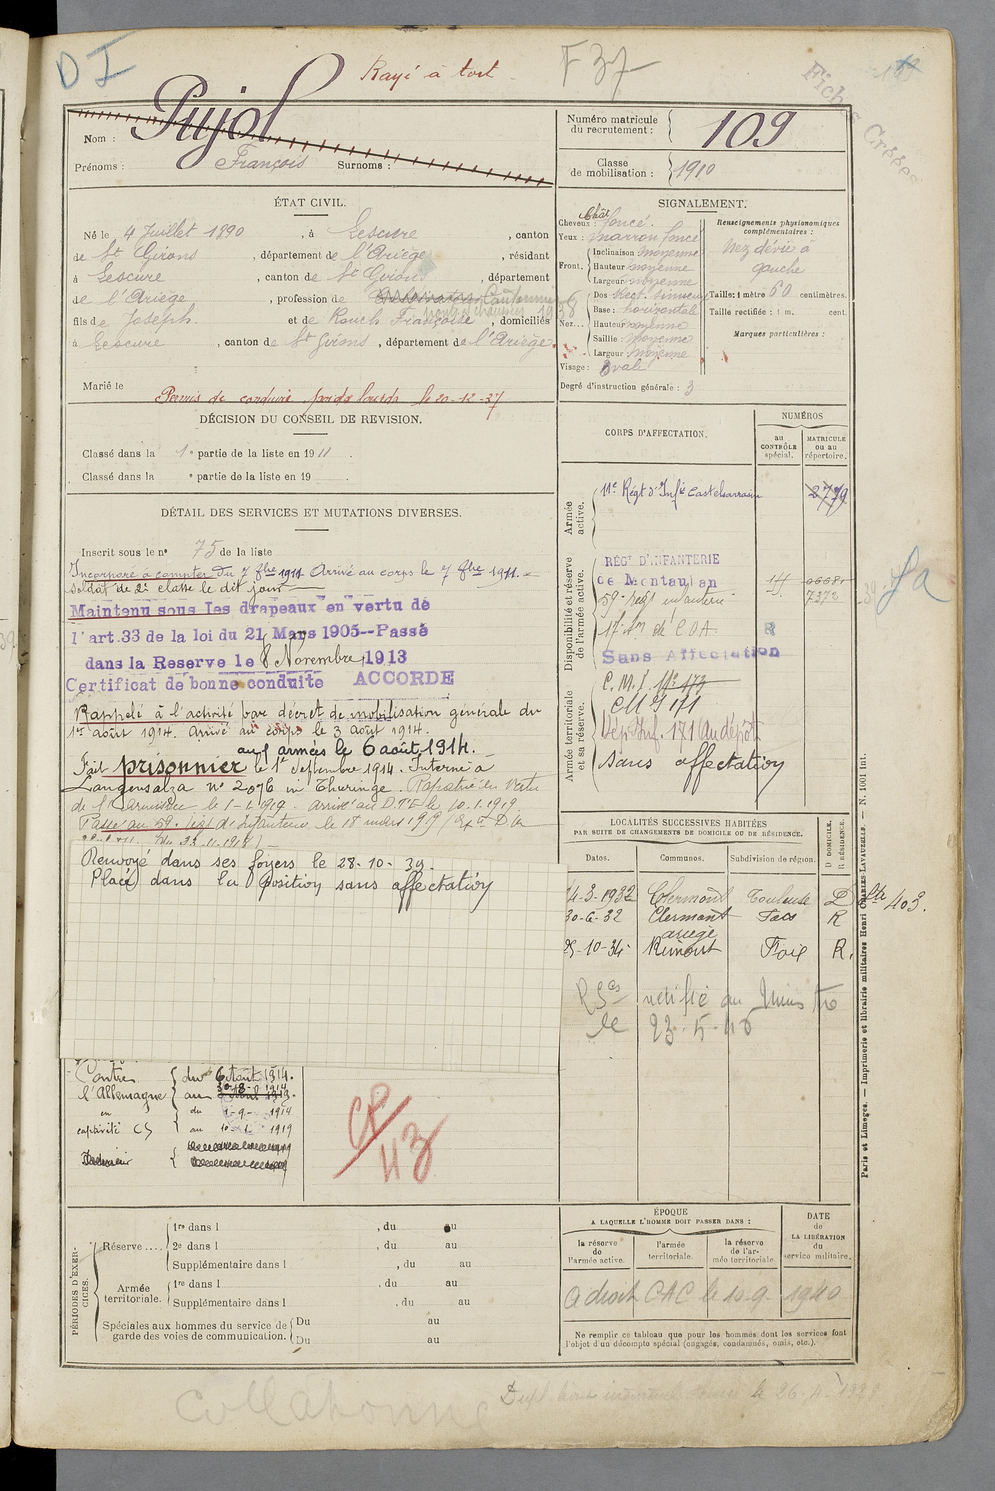 D I
Rayé à tort
F 37
Fiches Créées
Nom : Pujol
Prénoms : François Surnoms :
Numéro matricule du recrutement : 109
Classe de mobilisation : 1910
ÉTAT CIVIL.
Né le 4 Juillet 1890, à Lescure, canton
de St Girons, département de l'Ariège, résidant
à Lescure, canton de St Girons, département
de l'Ariège, profession de Cantonnier
fils de Joseph et de Rouch Françoise, domiciliés
à Lescure, canton de St Girons, département de l'Ariège.
Marié le
Permis de conduire poids lourds le 20-12-37
SIGNALEMENT.
Cheveux : Chât foncé.
Yeux : Marron foncé
Front. Inclinaison moyenne
Hauteur moyenne
Largeur moyenne
Nez... Dos Rect. sinueux
Base : horizontale
Hauteur moyenne
Saillie : moyenne
Largeur moyenne
Visage : Ovale
Degré d'instruction générale : 3
Renseignements physionomiques complémentaires :
Nez dévié à
gauche
Taille : 1 mètre 60 centimètres.
Taille rectifiée : 1 m. cent.
Marques particulières :
DÉCISION DU CONSEIL DE REVISION.
Classé dans la 1e partie de la liste en 1911.
Classé dans la e partie de la liste en 19 .
DÉTAIL DES SERVICES ET MUTATIONS DIVERSES.
Inscrit sous le no 75 de la liste
Incorporé à compter du 7 8bre 1911 Arrivé au corps le 7 8bre 1911.
Soldat de 2e classe le dit jour
Maintenu sous les drapeaux en vertu de
l'art.33 de la loi du 21 Mars 1905--Passé
dans la Reserve le 8 Novembre 1913
Certificat de bonne conduite ACCORDE
Rappelé à l'activité par décret de mobilisation générale du
1er août 1914. Arrivé au corps le 3 août 1914.
aux armées le 6 août 1914.
Fait prisonnier le 1er Septembre 1914. Interné à
Langensalza no 2076 in Thuringe. Rapatrié en Vertu
de l'Armistice le 1-1-1919. arrivé au D.T.E le 10.1.1919.
Passé au 59e Rég d'Infanterie le 18 mars 1919
Renvoyé dans ses foyers le 28-10-39.
Placé dans la position sans affectation
Contre l'Allemagne
du 6 Août 1914.
au 30-8-1914
en captivité CS
du 1-9-1914
au 10-1-1919
CR
43
CORPS D'AFFECTATION.
NUMÉROS
au CONTRÔLE spécial.
MATRICULE ou au répertoire.
Armée active.
11e Régt d'Infie Castelsarrasin 2779
Disponibilité et réserve de l'armée active.
RÉGt D'INFANTERIE
de Montauban
59e Régt infanterie 7372
17e Son de C.O.A. R
Sans Affectation
Armée territoriale et sa réserve.
C.M.I. No 173
CMI 171
Dép Inf. 171 (au dépôt
Sans affectation
LOCALITÉS SUCCESSIVES HABITÉES
PAR SUITE DE CHANGEMENTS DE DOMICILE OU DE RÉSIDENCE.
Dates. Communes. Subdivision de région. D DOMICILE. R RÉSIDENCE.
14-3-1932 Clermont Toulouse D
30-6-32 Clermont Foix R
ariège
25-10-34 Rimont Foix R.
notifié au Ministre
le 23-5-40
PÉRIODES D'EXERCICES.
Réserve.... 1re dans l , du au
2e dans l , du au
Supplémentaire dans l , du au
Armée territoriale. 1re dans l , du au
Supplémentaire dans l , du au
Spéciales aux hommes du service de garde des voies de communication. Du au
Du au
ÉPOQUE
A LAQUELLE L'HOMME DOIT PASSER DANS :
la réserve de l'armée active.
l'armée territoriale.
la réserve de l'armée territoriale.
DATE
de
LA LIBÉRATION
du
service militaire.
A droit CAC le 10-9-1940
Ne remplir ce tableau que pour les hommes dont les services font
l'objet d'un décompte spécial (engagés, condamnés, omis, etc.).
Paris et Limoges. — Imprimerie et librairie militaires Henri CHARLES-LAVAUZELLE. — N. 1001 int.